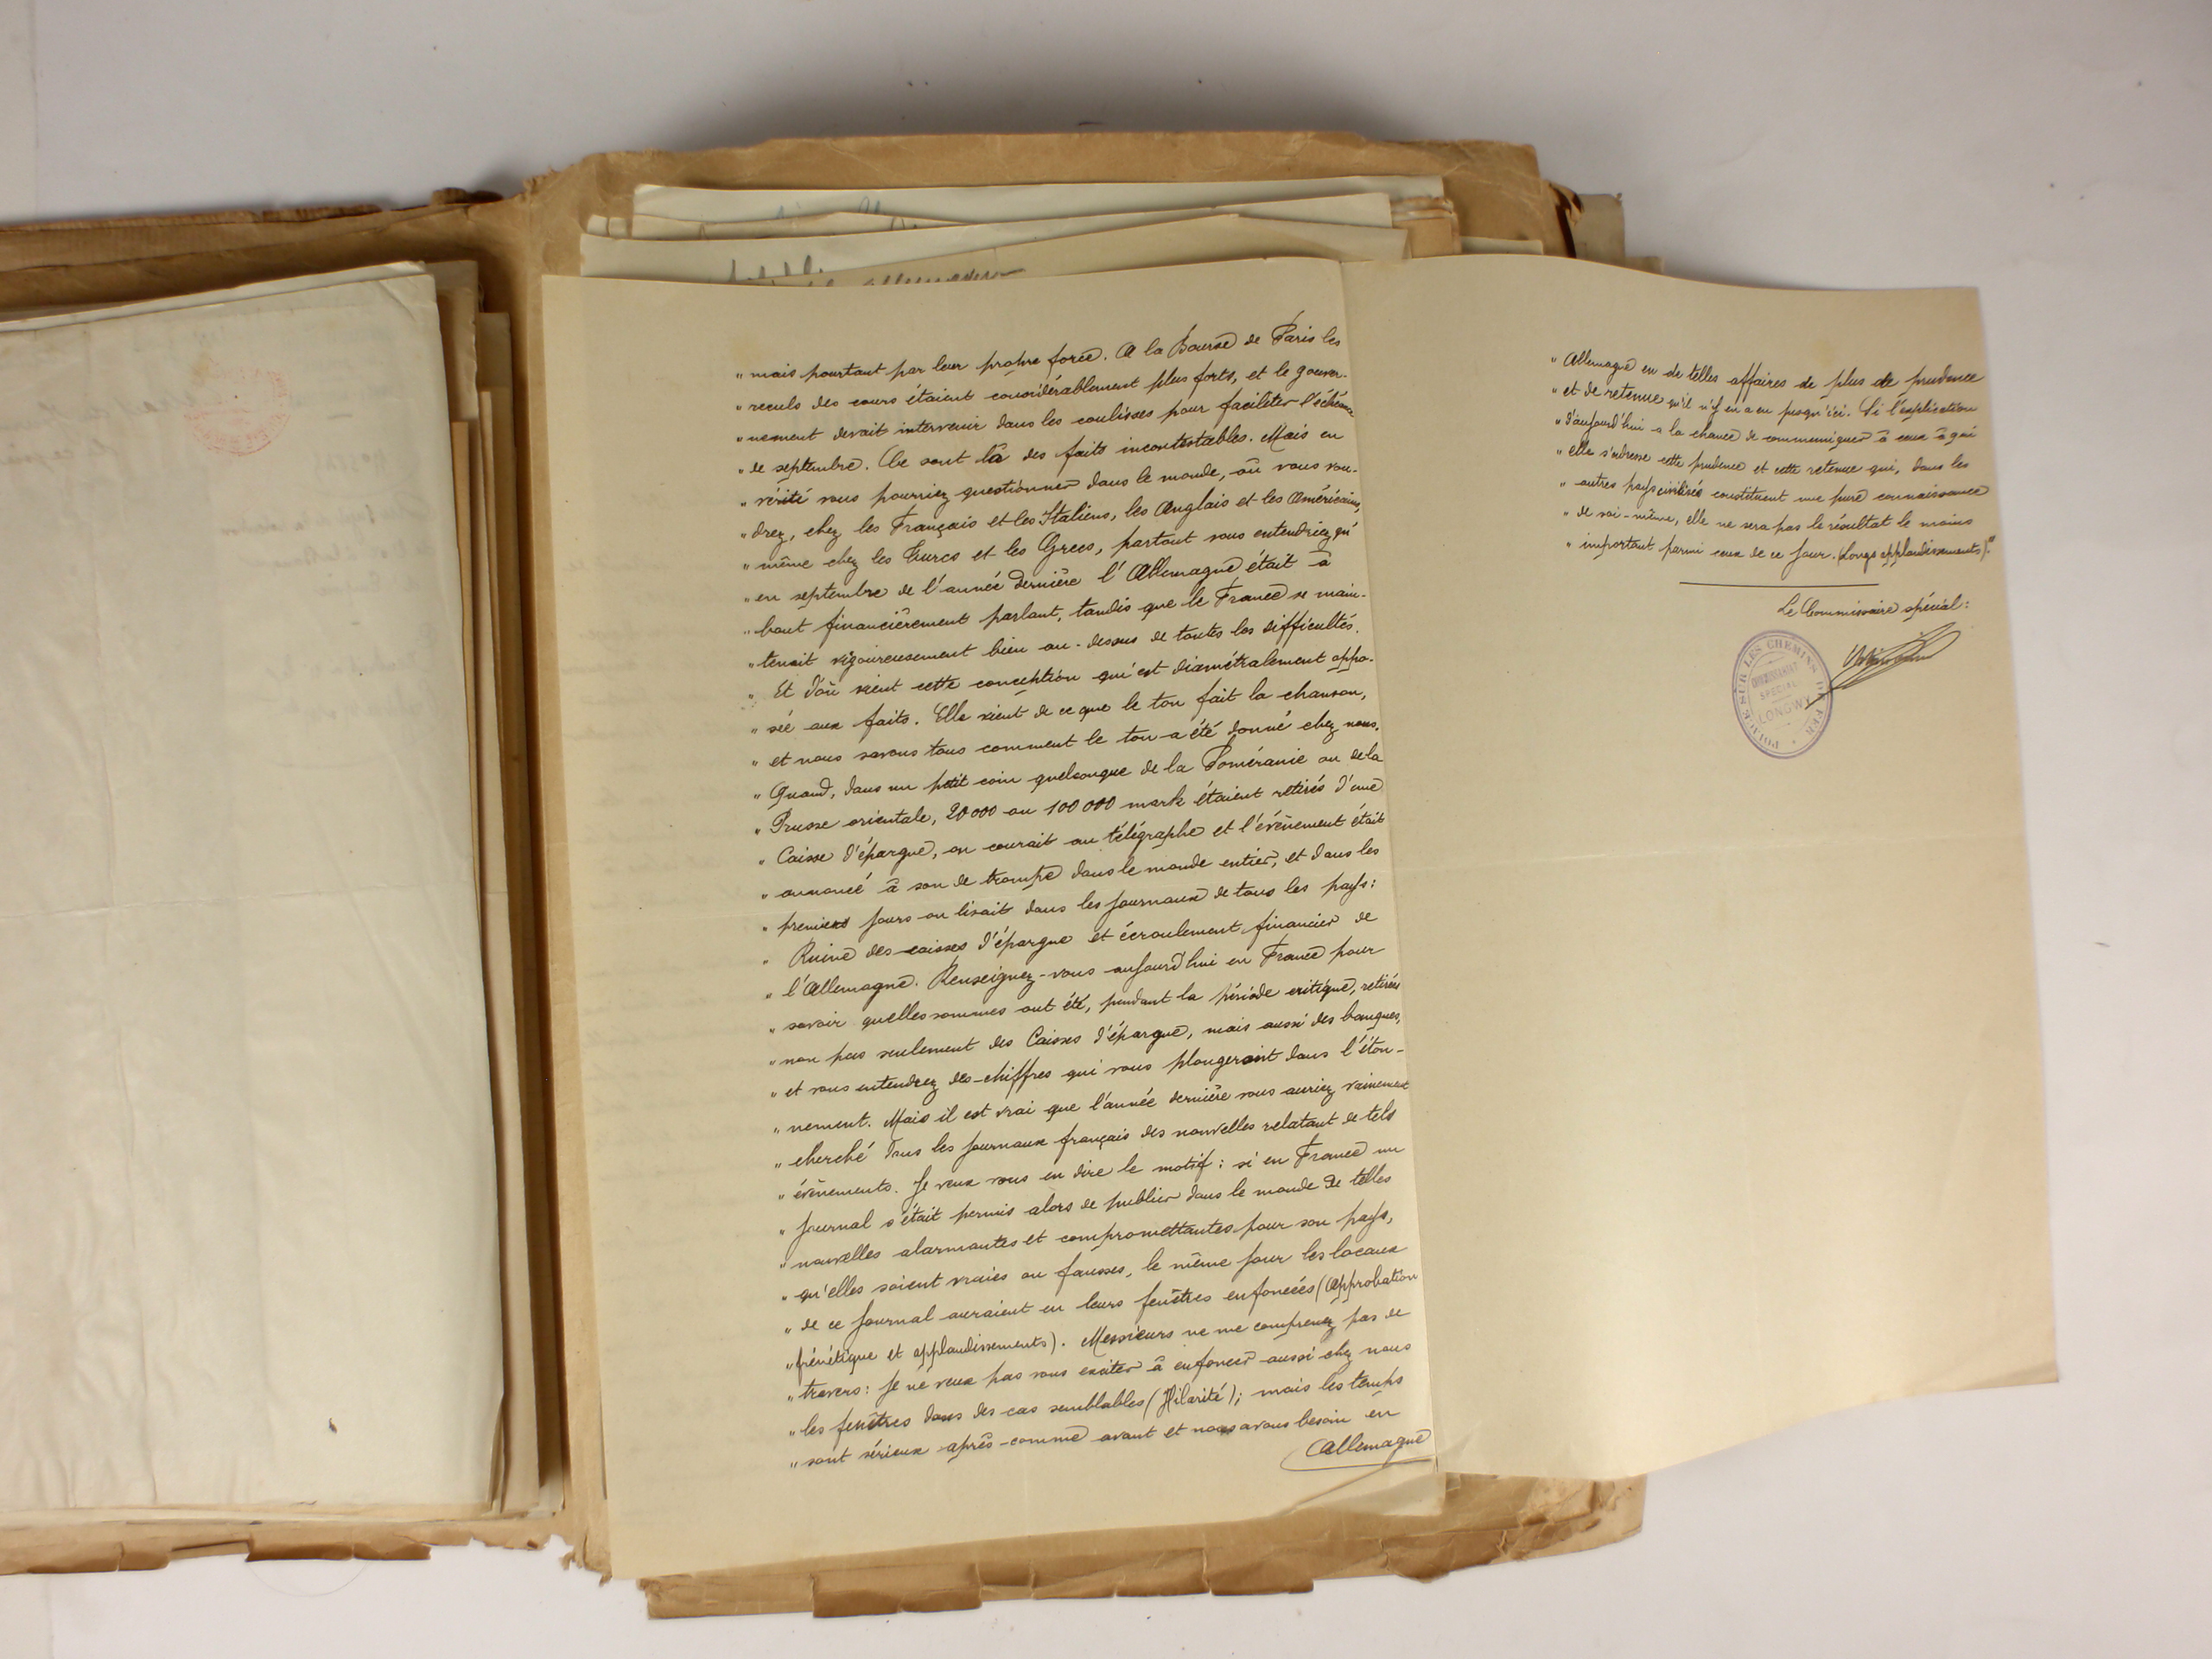 „ mais pourtant par leur propre force. A la Bourse de Paris les
„ reculs des cours étaient considérablement plus forts, et le gouver-
„ nement devait intervenir dans les coulisses pour faciliter l'échéance
„ de septembre. Ce sont là des faits incontestables. Mais en
„ vérité vous pourriez questionner dans le monde, où vous vou-
„ drez, chez les Français et les Italiens, les Anglais et les Américains,
„ même chez les Turcs et les Grecs, partout vous entendriez qu'
„ en septembre de l'année dernière l'Allemagne était à
„ bout financièrement parlant, tandis que la France se main-
„ tenait vigoureusement bien au-dessus de toutes les difficultés.
„ Et d'où vient cette conception qui est diamétralement oppo-
„ sée aux faits. Elle vient de ce que le ton fait la chanson,
„ et nous savons tous comment le ton a été donné chez nous.
„ Quand, dans un petit coin quelconque de la Poméranie ou de la
„ Prusse orientale, 20 000 ou 100 000 mark étaient retirés d'une
„ Caisse d'épargne, on courait au télégraphe et l'événement était
„ annoncé à son de trompe dans le monde entier, et dans les
„ premiers jours on lisait dans les journaux de tous les pays:
„ Ruine des caisses d'épargne et écroulement financier de
„ l'Allemagne. Renseignez-vous aujourd'hui en France pour
„ savoir quelles sommes ont été, pendant la période critique, retirées
„ non pas seulement des Caisses d'épargne, mais aussi des banques,
„ et vous entendrez des chiffres qui vous plongeront dans l'éton-
„ nement. Mais il est vrai que l'année dernière vous auriez vainement
„ cherché dans les journaux français des nouvelles relatant de tels
„ événements. Je veux vous en dire le motif: si en France un
„ journal s'était permis alors de publier dans le monde de telles
„ nouvelles alarmantes et compromettantes pour son pays,
„ qu'elles soient vraies ou fausses, le même jour les locaux
„ de ce journal auraient eu leurs fenêtres enfoncées (Approbation
„ frénétique et applaudissements). Messieurs ne me comprenez pas de
„ travers: je ne veux pas vous exciter à enfoncer aussi chez nous
„ les fenêtres dans des cas semblables (Hilarité); mais les temps
„ sont sérieux après comme avant et nous avons besoin en
Allemagne
„ Allemagne en de telles affaires de plus de prudence
„ et de retenue qu'il n'y en a eu jusqu'ici. Si l'explication
„ d'aujourd'hui a la chance de communiquer à ceux à qui
„ elle s'adresse cette prudence et cette retenue qui, dans les
„ autres pays civilisés constituent une pure connaissance
„ de soi-même, elle ne sera pas le résultat le moins
„ important parmi ceux de ce jour. (Longs applaudissements)."
Le Commissaire spécial:
POLICE SUR LES CHEMINS DE FER
COMMISSARIAT
SPECIAL
LONGWY